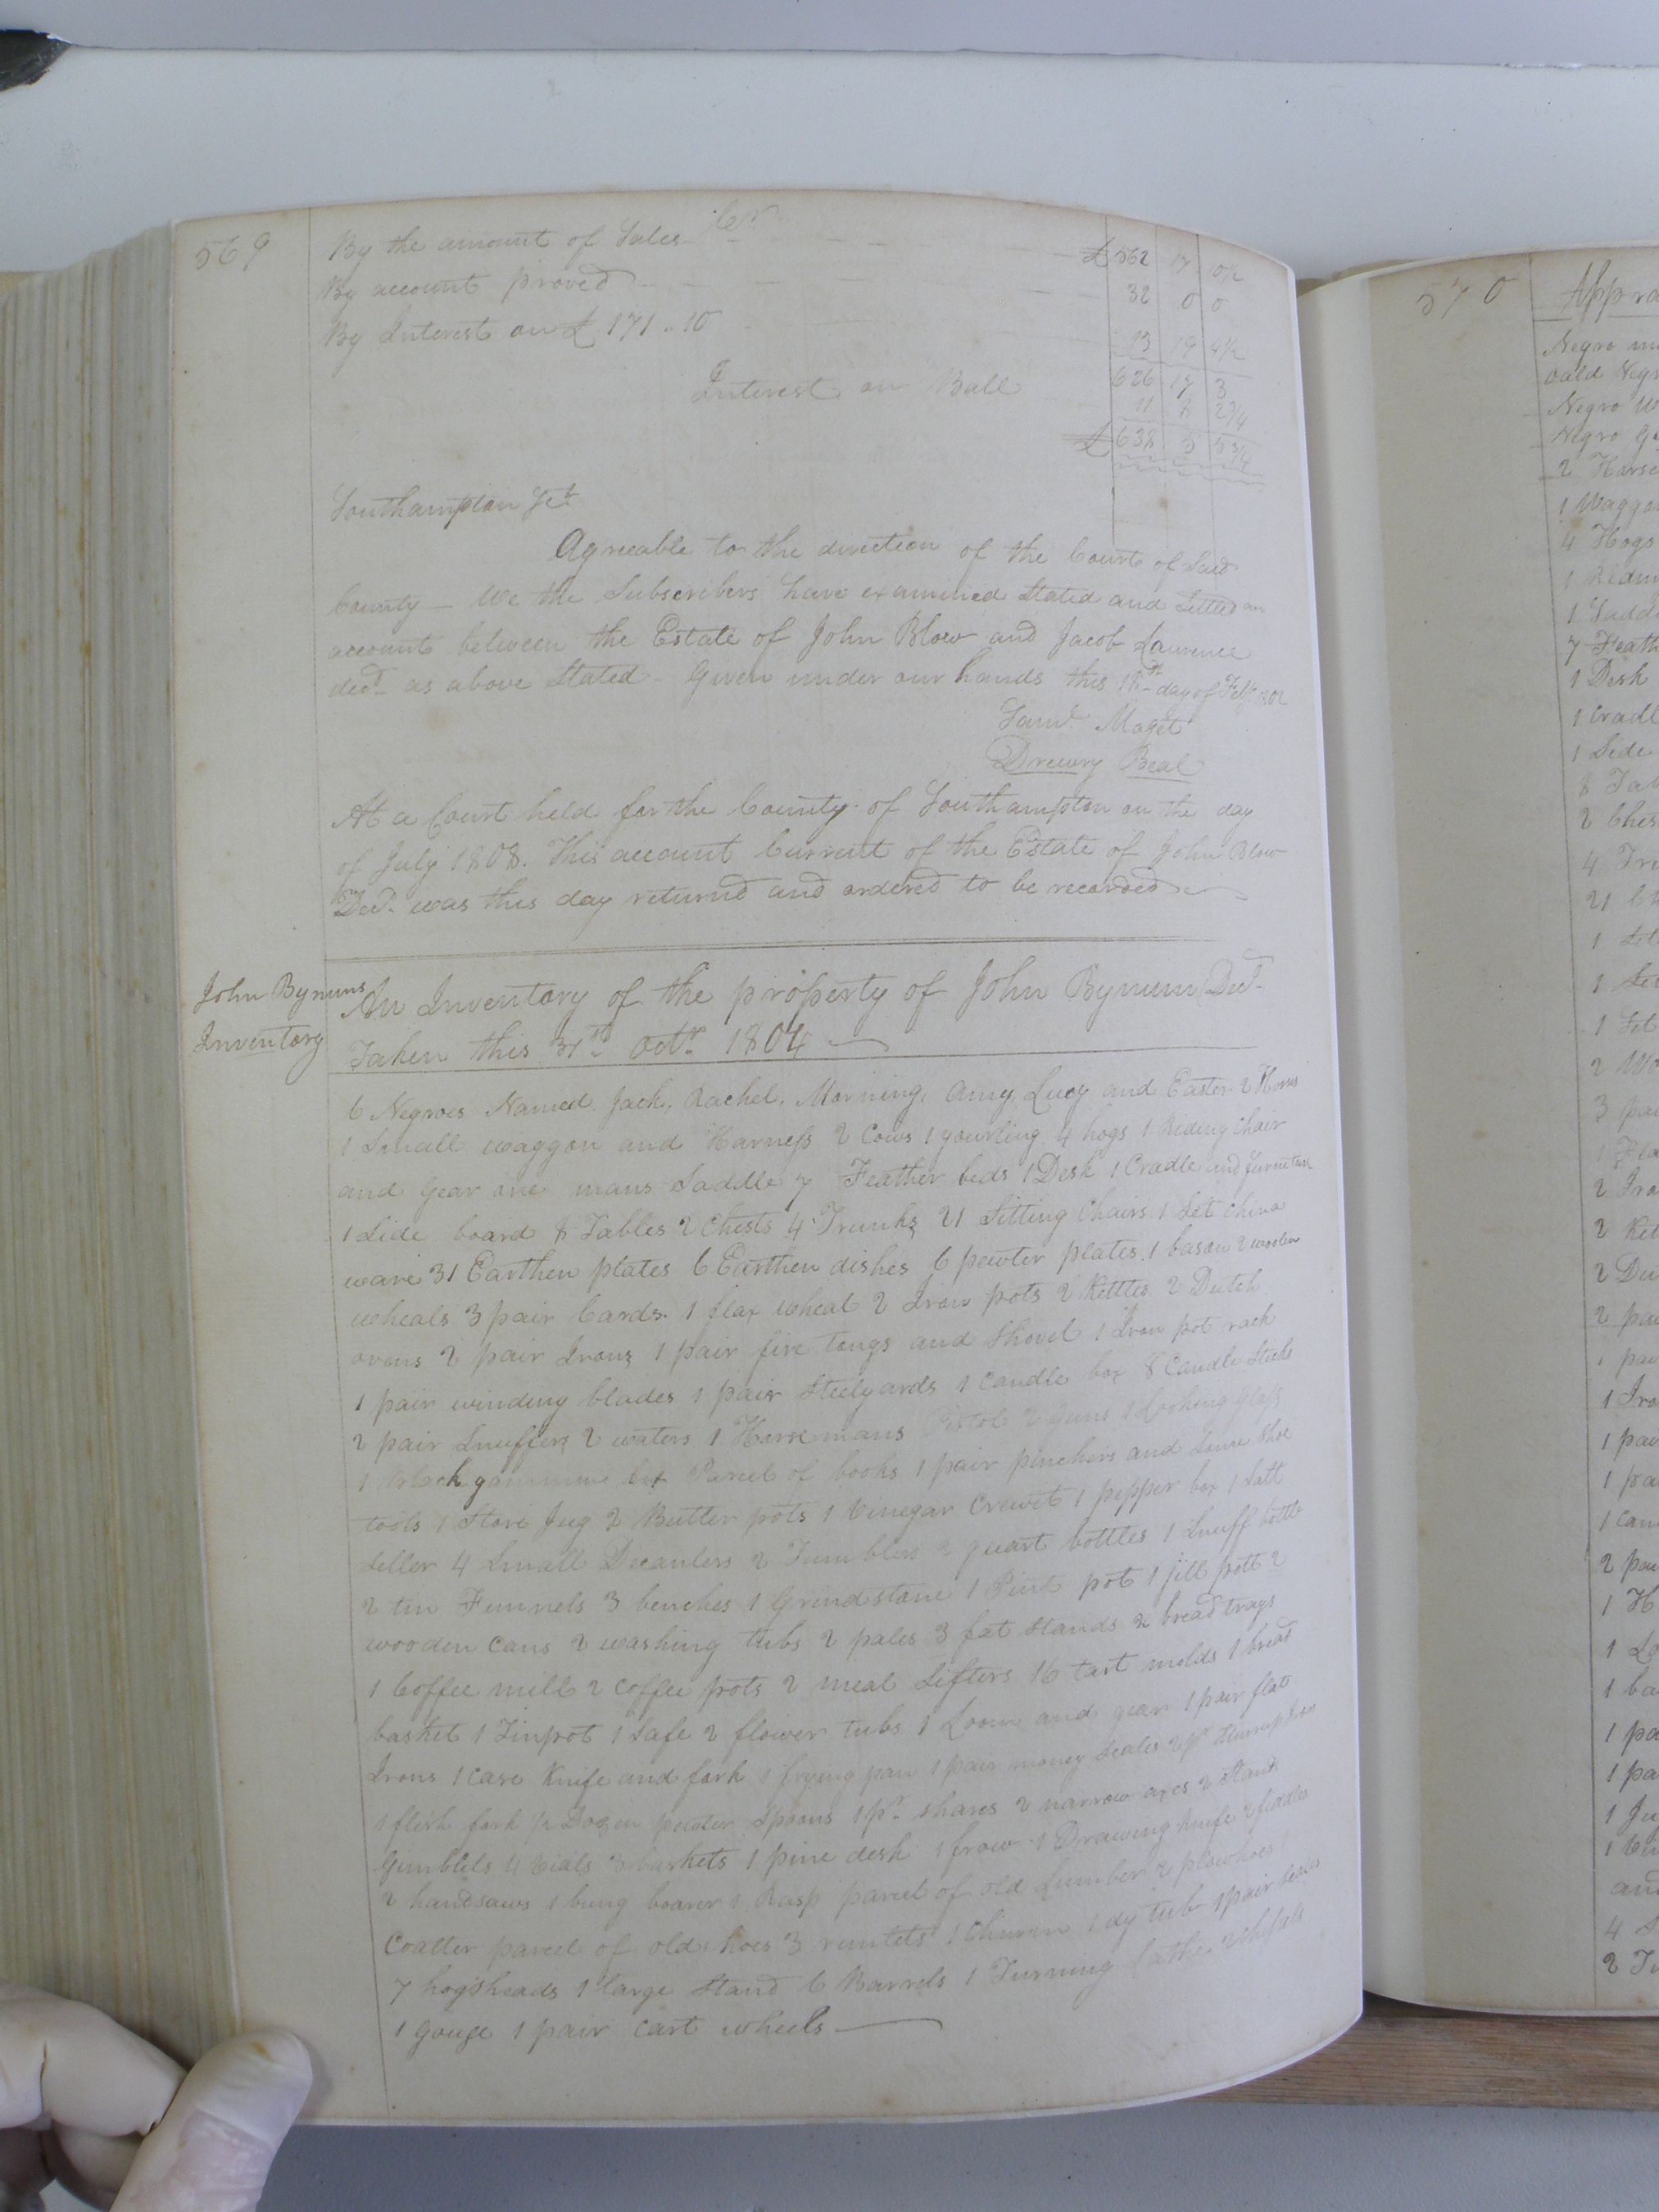 569
Cr
By the amount of Sales £562 17 0½
By account proved 32 0 0
By Interest on £ 171 .. 10 19 4½
626 17 3
Interest on Ball 11 8 2¾
£638 5 5¾
Southampton Sct
Agreeable to the direction of the Court of Said
County — We the Subscribers have examined Stated and Settled an
account between the Estate of John Blow and Jacob Laurence
decd as above Stated - Given under our hands this day of Feby 1802
Saml Maget
Drewry Beal
At a Court held for the County of Southampton on the day
of July 1808. This account Current of the Estate of John Blow
Decd was this day returnd and ordered to be recorded
John Bynums
Inventory
An Inventory of the property of John Bynum Decd
Taken this 31st Octr 1804
6 Negroes Named Jack, Rachel, Morning, Amy, Lucy and Easter 2 Horses
1 Small waggon and Harness 2 Cows 1 yourling 4 hogs 1 Riding Chair
and Gear one mans Saddle 7 Feather beds 1 Desk 1 Cradle and furniture
1 Side board 8 Tables 2 Chests 4 Trunks 21 Sitting Chairs 1 Set china
ware 31 Earthen plates 6 Earthen dishes 6 pewter plates 1 bason 2 woolen
wheals 3 pair Cards 1 flax wheal 2 Iron pots 2 Kittles 2 Dutch
ovens 2 pair Irons 1 pair fire tongs and Shovel 1 Iron pot rack
1 pair winding blades 1 pair Steelyards 1 Candle box 8 Candle Sticks
2 pair Snuffers 2 waters 1 Horsemans Pistol 2 Guns 1 Looking Glass
1 Black gammon box Parcel of books 1 pair pinchers and Some Shoe
tools 1 Stone Jug 2 Butter pots 1 Vinegar Crewet 1 pepper box 1 Salt
Seller 4 Small Decanters 2 Tumblers 2 quart bottles 1 Snuff bottle
2 tin Funnels 3 benches 1 Grindstone 1 Pint pot 1 jill pott 2
wooden cans 2 washing tubs 2 pales 3 fat Stands 2 bread trays
1 Coffee mill 2 Coffee pots 2 meal Sifters 16 tart molds 1 bread
basket 1 Tinpot 1 Safe 2 flower tubs 1 Loom and gear 1 pair flat
Irons 1 Case Knife and fork 1 frying pan 1 pair money Scales 2 pr Sturrup Irons
1 flesh fork ½ Dozen pewter Spoons 1 pr shares 2 narrow axes 2 Stands
Gimblets 4 Vials 3 baskets 1 pine desk 1 frow 1 Drawing knife 2 fiddles
2 handsaws 1 bung boarer 1 Rasp parcel of old Lumber 2 plowhoes
Coalter parcel of old hoes 3 runtets 1 Churn 1 dy tub 1 pair Scales
7 hogsheads 1 large Stand 6 Barrels 1 Turning lathe 2 chissels
1 gouge 1 pair cart wheels
570
Negro
Negro
Negro
2
4 Hogs
1
1
7
1 Desk
1
1 Side
8
2
4
21
1
1
1
2
3
1
2
2
2
2
1
1
1
1
1
2
1
1
1
1
1
1
1
4
2